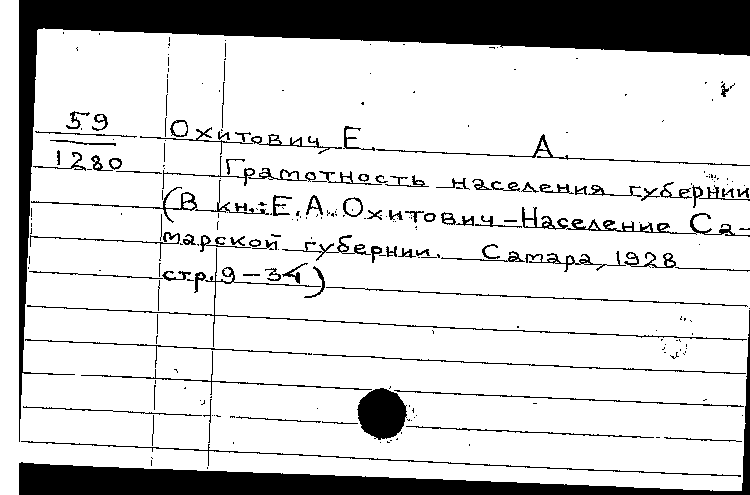 59
1280
Охитович, Е. А.
Грамотность населения губернии
(В кн.: Е. А. Охитович – Население Са-
марской губернии. Самара, 1928
стр. 9 – 34)